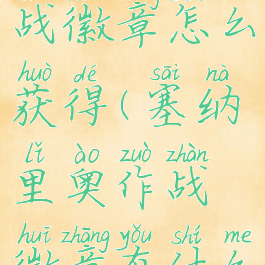 战徽章怎么
huò dé sāi nà
获得(塞纳
lǐ ào zuò zhàn
里奥作战
huī zhāng yǒu shí me
徽章有什么